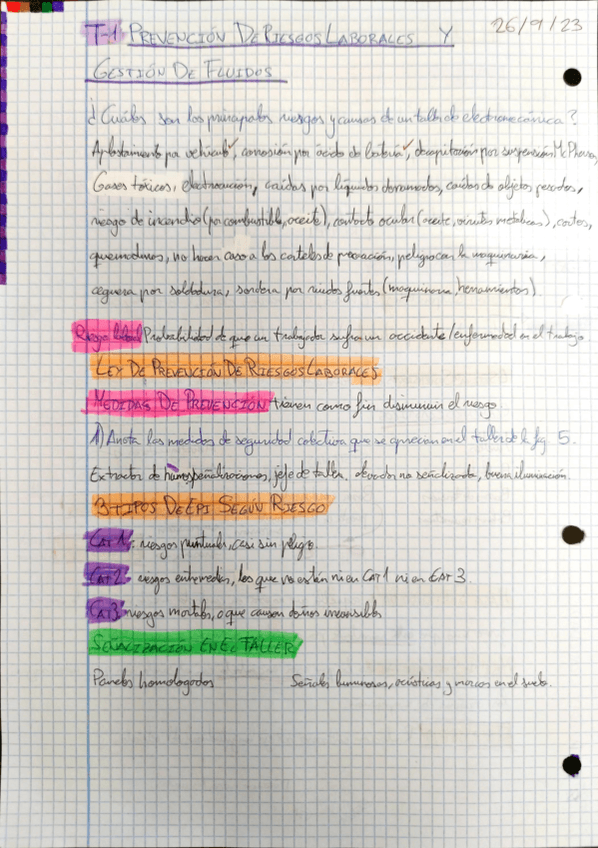 26/9/23
T-1 PREVENCIÓN DE RIESGOS LABORALES Y
GESTIÓN DE FLUIDOS
¿Cuáles son los principales riesgos y causas de un taller de electromecánica?
Aplastamiento por vehículo, corrosión por ácido de batería, decapitación por suspensión McPherson,
Gases tóxicos, electrocución, caídas por líquidos derramados, caídas de objetos pesados,
riesgo de incendio (por combustible, aceite), contacto ocular (aceite, virutas metálicas), cortes,
quemaduras, no hacer caso a los carteles de precaución, peligro con la maquinaria,
ceguera por soldadura, sordera por ruidos fuertes (maquinaria, herramientas).
Riesgo laboral Probabilidad de que un trabajador sufra un accidente/enfermedad en el trabajo
LEY DE PREVENCIÓN DE RIESGOS LABORALES
MEDIDAS DE PREVENCIÓN tienen como fin disminuir el riesgo
1) Anota las medidas de seguridad colectiva que se aprecian en el taller de la fig 5.
Extractor de humos, señalizaciones, jefe de taller, elevador no señalizado, buena iluminación.
3 TIPOS DE EPI SEGÚN RIESGO
CAT 1: riesgos puntuales, casi sin peligro.
CAT 2: riesgos intermedios, los que no están ni en CAT 1 ni en CAT 3.
CAT 3 riesgos mortales, o que causan daños irreversibles
SEÑALIZACIÓN EN EL TALLER
Paneles homologados Señales luminosas, acústicas y marcas en el suelo.